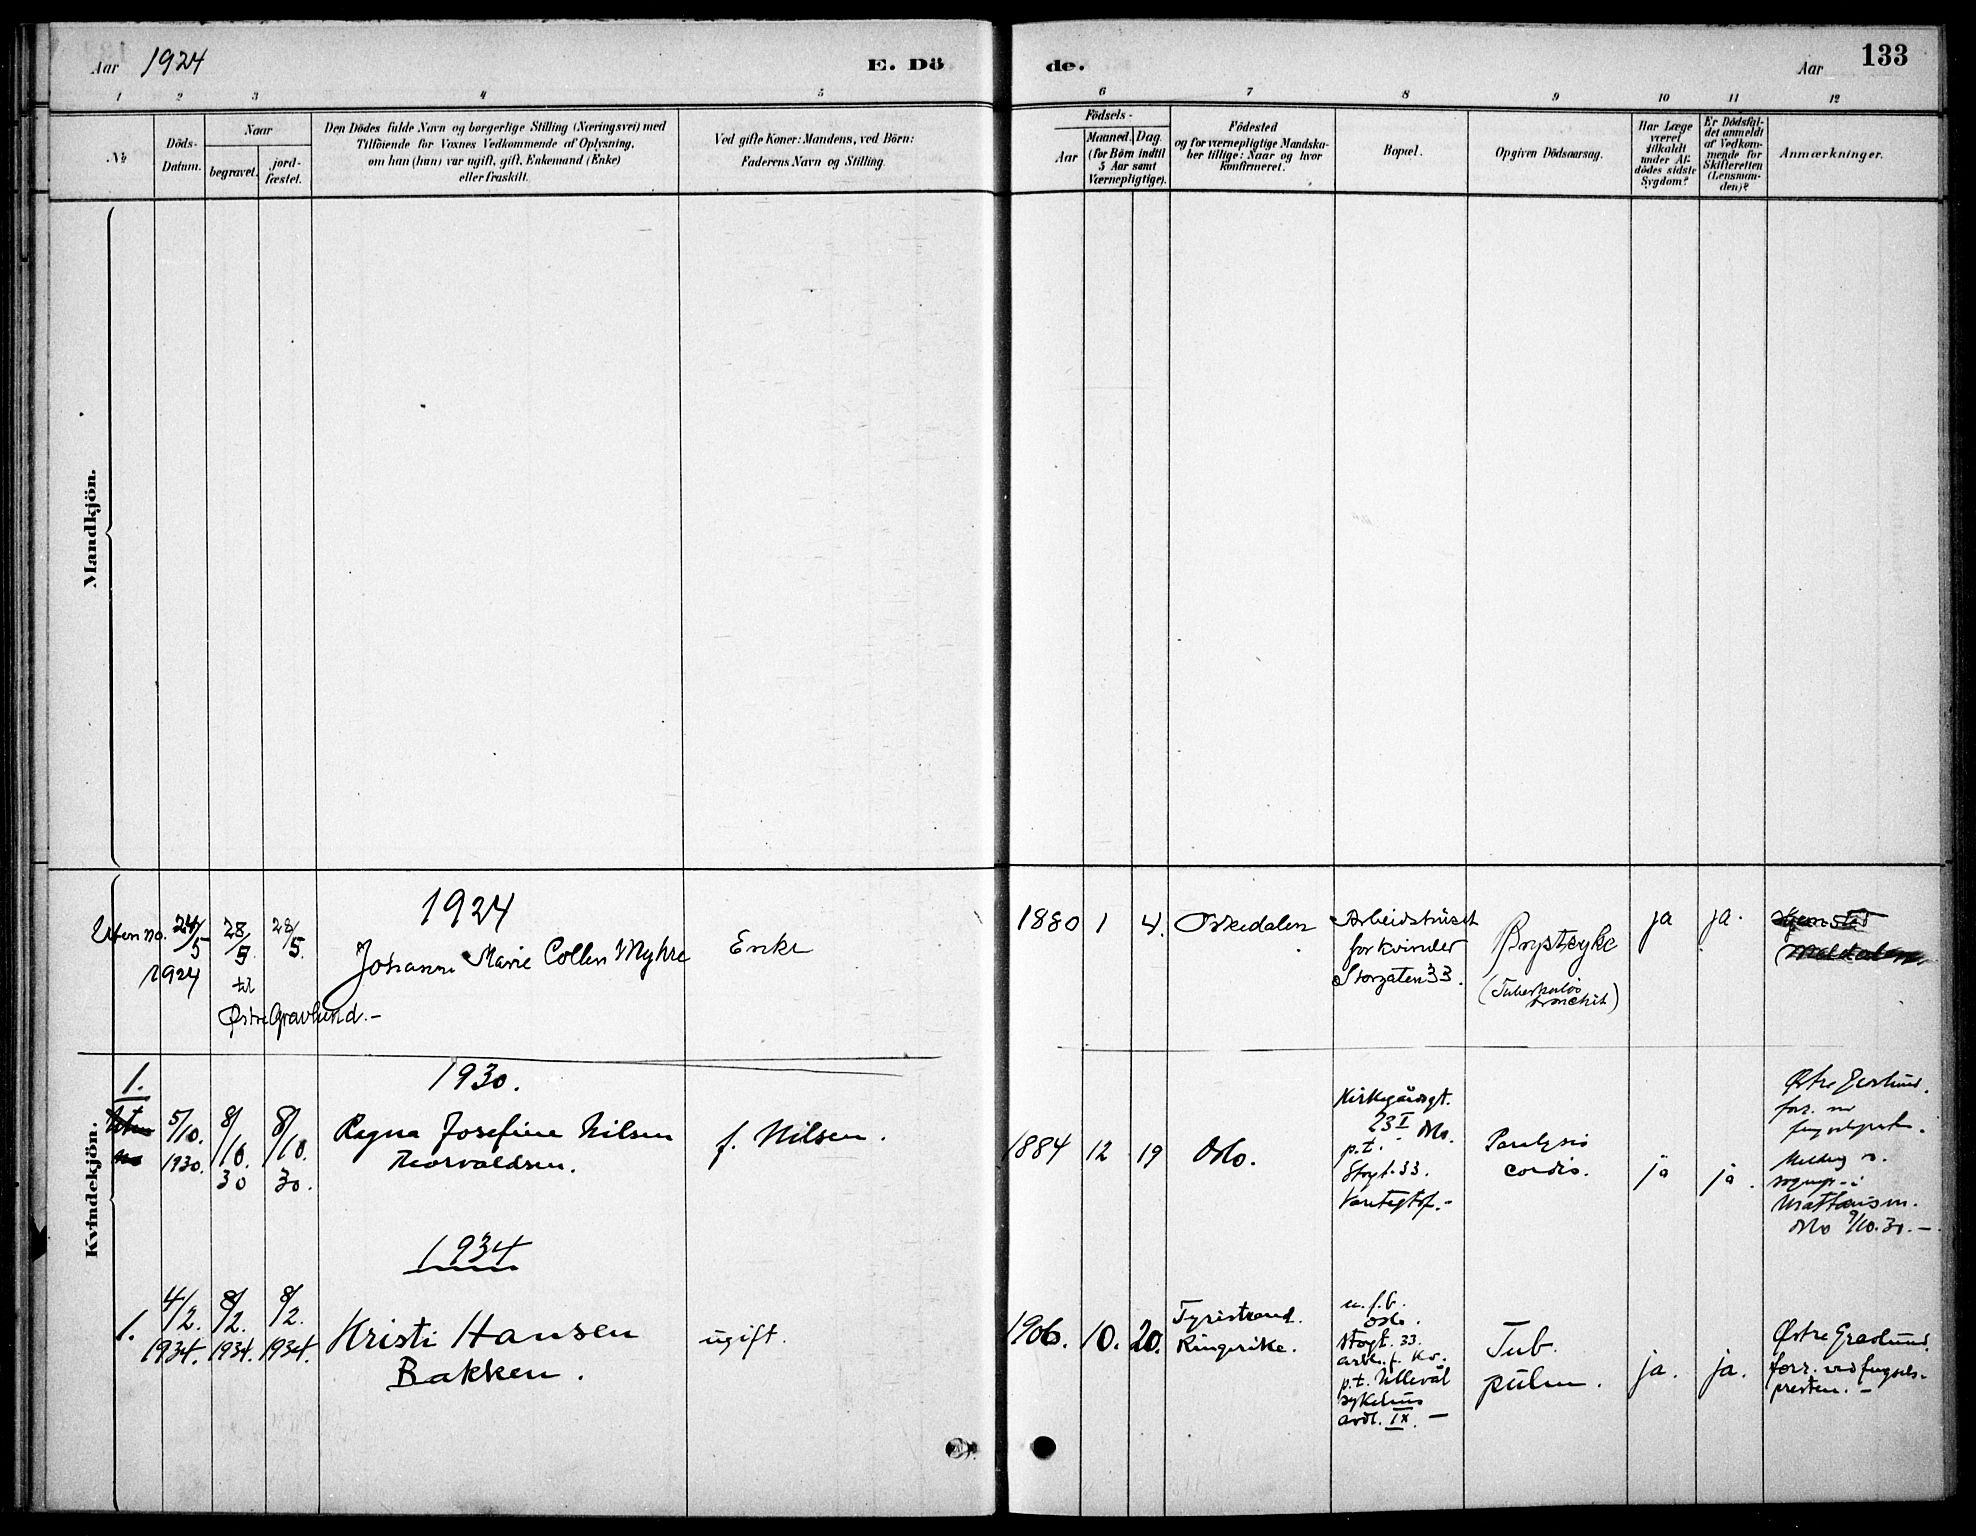 Aar 1924
E. Dö
de.
Aar
133
1 2 3 4 5
6 7 8 9 10 11 12
No
Döds-
Datum.
Naar
begravet.
jord-
fæstet.
Den Dödes fulde Navn og borgerlige Stilling (Næringsvei) med
Tilföiende for Voxnes Vedkommende af Oplysning,
om han (hun) var ugift, gift, Enkemand (Enke)
eller fraskilt.
Ved gifte Koner: Mandens, ved Börn:
Faderens Navn og Stilling.
Födsels-
Aar
Maaned. Dag.
(for Börn indtil
5 Aar samt
Værnepligtige).
Födested
og for værnepligtige Mandska-
ber tillige: Naar og hvor
konfirmeret.
Bopæl.
Opgiven Dödsaarsag.
Har Læge
været
tilkaldt
under Af-
dödes sidste
Sygdom?
Er Dödsfal-
det anmeldt
af Vedkom-
mende for
Skifteretten
(Lensman-
den)?
Anmærkninger.
Mandkjön.
Kvindekjön.
1924
Uten no.
24/5
1924
28/5
til
Østre Gravlund.-
28/5.
Johanne Marie Collen Myhre
Enke
1880 1 4.
Askedalen
Arbeidshuset
for kvinder
Storgaten 33.
Brystsyke
(Tuberkuløs
bronchit)
ja
ja.
1930.
1.
Uten
no
5/10.
1930.
8/10.
30
8/10.
30.
Ragna Josefine Nilsen
Thorvaldsen.
f. Nilsen.
1884 12 19
Oslo.
Kirkegårdsgt.
23 I Oslo.
p.t.
Stogt. 33.
Paralysis
cordis.
ja
ja.
Østre Gravlund.
Oslo 9/10.30.-
1934
1.
4/2.
1934.
8/2.
1934.
8/2.
1934.
Kristi Hansen
Bakken.
ugift.
1906. 10. 20.
Tyristrand.
Ringerike.
u. f. b.
Oslo.
Stogt. 33.
arbh. f. Kv.
p.t. Ullevål
sykehus
avdl. IX. -
Tub.
pulm.
ja.
ja.
Østre Gravlund.
forr. ved fengsels-
presten. -